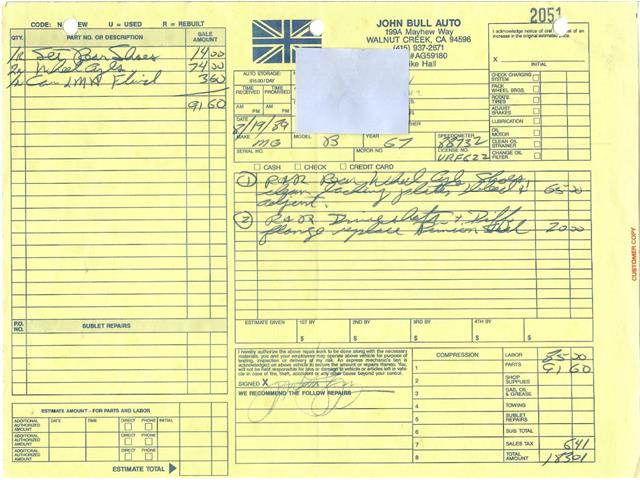 CODE: N - NEW U = USED R = REBUILT
QTY. PART NO. OR DESCRIPTION SALE AMOUNT
Set Rear Shoes 14 00
2 Wheel Cyls 74 00
Can LMA Fluid 3 60
91 60
P.O. NO. SUBLET REPAIRS
ESTIMATE AMOUNT - FOR PARTS AND LABOR
ADDITIONAL AUTHORIZED AMOUNT DATE TIME DIRECT PHONE INITIAL DIRECT PHONE
ADDITIONAL AUTHORIZED AMOUNT
ADDITIONAL AUTHORIZED AMOUNT
ESTIMATE TOTAL
JOHN BULL AUTO
199A Mayhew Way
WALNUT CREEK, CA 94596
(415) 937-2671
#AG59180
ike Hall
2051
I acknowledge notice of oral
an increase in the original estimated price.
X
INITIAL
AUTO STORAGE:
$15.00/DAY
TIME RECEIVED TIME PROMISED
AM PM AM PM
7/19/89
MAKE MG MODEL B YEAR 67 SPEEDOMETER 88732
SERIAL NO. LICENSE NO. URF622
CHECK CHARGING SYSTEM
PACK WHEEL BRGS.
ROTATE TIRES
ADJUST BRAKES
LUBRICATION
OIL MOTOR
CLEAN OIL STRAINER
CHANGE OIL FILTER
CASH CHECK CREDIT CARD
1 R&R Rear Wheel Cyls Shoes
clean backing plates, bleed &
adjust. 65 00
2 R&R Driveshaft + Diff
flange replace Pinion Seal 20 00
CUSTOMER COPY
ESTIMATE GIVEN 1ST BY $ 2ND BY $ 3RD BY $ 4TH BY $
I hereby authorize the above repair work to be done along with the necessary
materials, you and your employees may operate above vehicle for purpose of
testing, inspection or delivery at my risk. An express mechanic's lien is
acknowledged on above vehicle to secure the amount or repairs thereto. You
will not be held responsible for loss or damage to vehicle or articles left in vehicle
in case of fire, theft, accident or any other cause beyond your control.
SIGNED X
WE RECOMMEND THE FOLLOW REPAIRS
COMPRESSION LABOR 85 00
1 PARTS 91 60
2 SHOP SUPPLIES
3 GAS, OIL & GREASE
4 TOWING
5 SUBLET REPAIRS
6 SUB TOTAL
7 SALES TAX 6 41
8 TOTAL AMOUNT 183 01